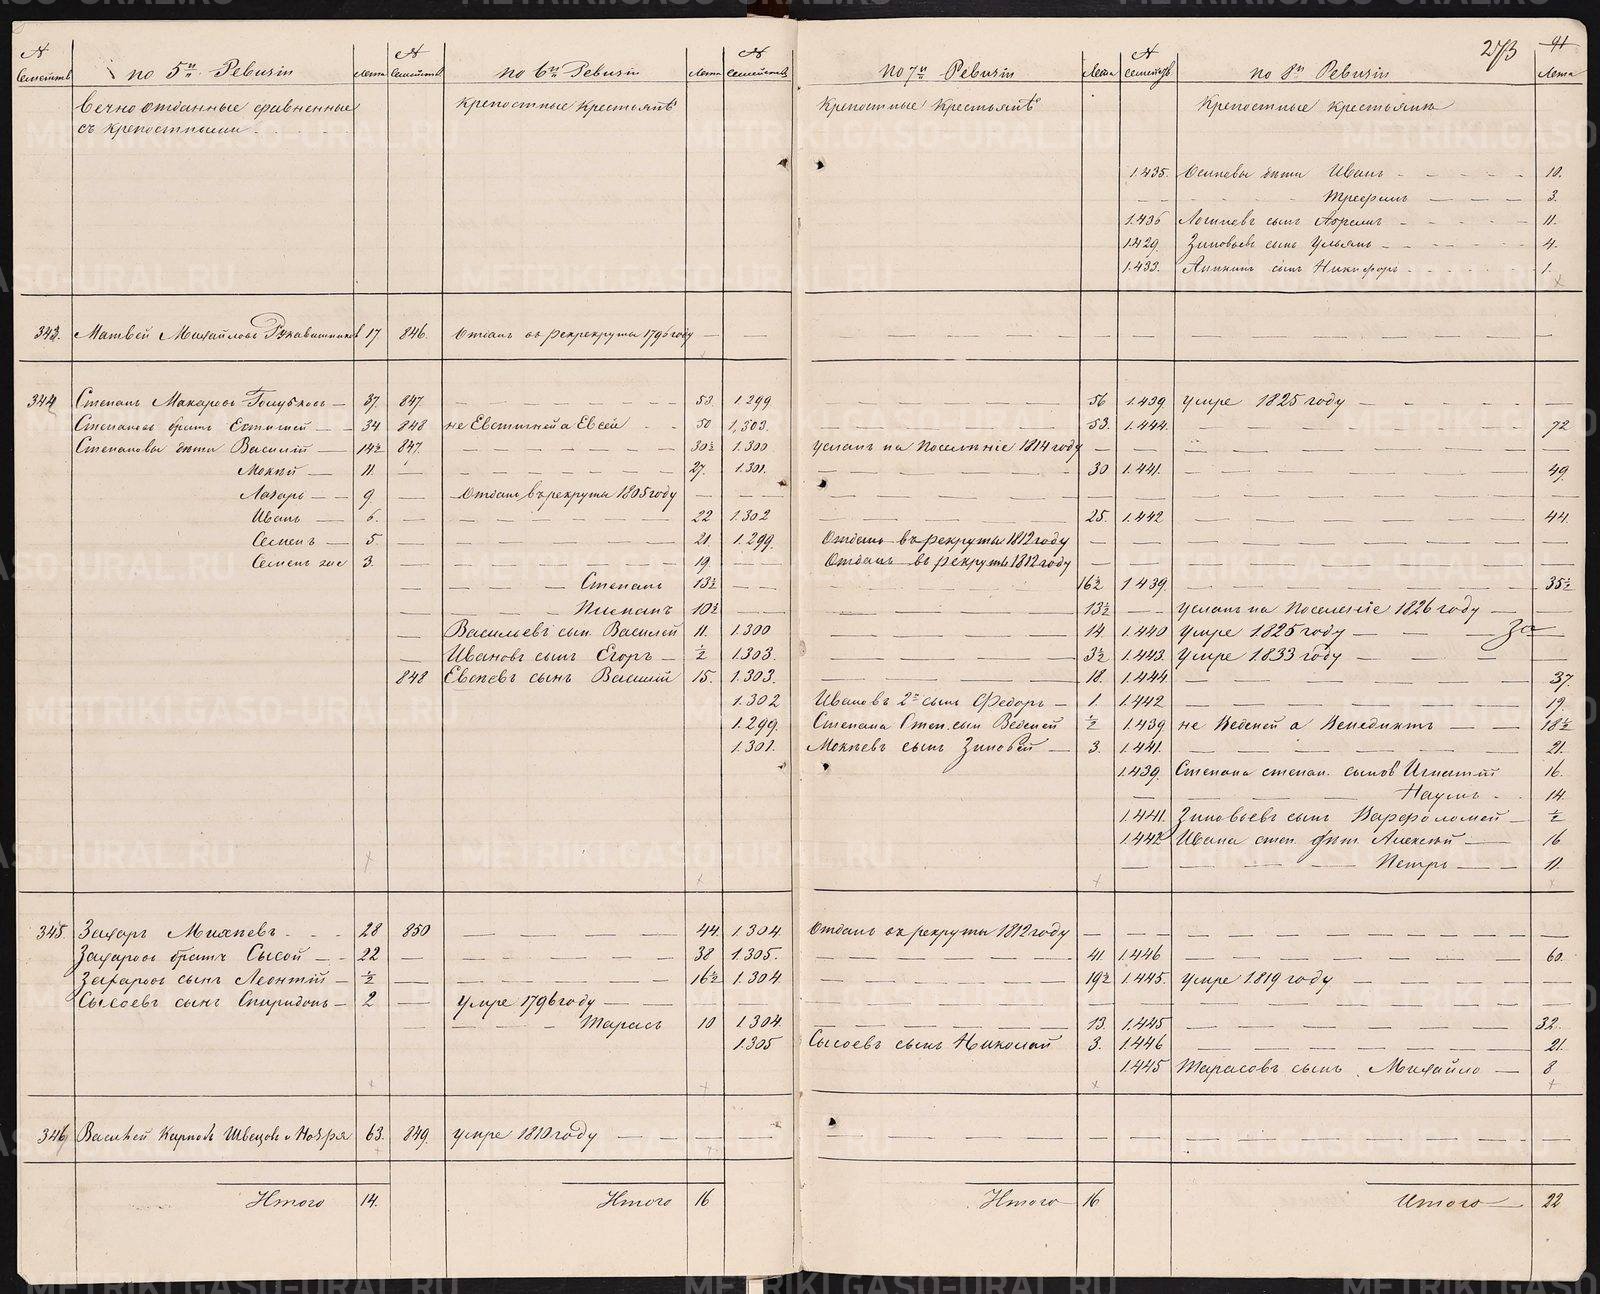 273 41
№ семейств по 5й Ревизіи лета № семейств по 6й Ревизіи лета № семейств по 7й Ревизіи лета № семейств по 8й Ревизіи лета
Вечно отданные сравненные Крепостные Крестьянѣ Крепостные Крестьянѣ Крепостные Крестьянѣ
съ крепостными
1.435. Осиповы дѣти Иванъ 10.
Трефилъ 3.
1.436 Логиновъ сынъ 11.
1.429. Зиновьевъ сынъ Ульянъ 4.
1.433. сынъ Никифоръ 1.
343. Матвей Михайловъ Рукавишниковъ 17 846. Отданъ въ рекрекруты 1796 году
344 Степанъ Макаровъ Голубковъ 37. 847 53. 1.299. 56 1.439. умре 1825 году
Степановъ братъ Евтигней 34. 848 не Евстигней а Евсей 50 1.303. 53. 1.444. 72
Степановы дѣти Василій 14½ 847. 30½ 1.300 усланъ на Поселеніе 1814 году
Мокей 11. 27. 1.301. 30 1.441. 49.
Лазарь 9. Отданъ въ рекруты 1805 году
Иванъ 6. 22 1.302 25. 1.442 44.
Семенъ 5. 21. 1.299. Отданъ въ рекруты 1812 году
Семенъ же 3. 19. Отданъ въ рекруты 1812 году
Степанъ 13½ 16½ 1.439. 35½
10½ 13½ усланъ на Поселеніе 1826 году
Васильевъ сын Василей 11. 1.300 14. 1.440 умре 1.825 году
Ивановъ сынъ Егоръ ½ 1.303. 3½ 1.443. умре 1.833 году
848 Евсеевъ сынъ Василій 15. 1.303. 18. 1.444 37.
1.302 Ивановъ 2й сынъ Федоръ 1. 1.442 19.
1.299. Степана Степ. сын Веденей ½ 1.439 не Веденей а Венедиктъ 18½
1.301. Мокеевъ сынъ Зиновей 3. 1.441. 21.
1.439. Степана степан. сыновъ Игнатій 16.
Наумъ 14.
1.441. Зиновьевъ сынъ Варфоломей ½
1.442 Ивана степ. дѣти Алексей 16
Петръ 11.
345. Захаръ 28 850 44. 1.304. Отданъ въ рекруты 1812 году
Захаровъ братъ Сысой 22 38 1.305. 41 1.446 60.
Захаровъ сынъ Леонтій ½ 16½ 1.304 19½ 1.445. умре 1.819 году
Сысоевъ сынъ Спиридонъ 2 умре 1796 году
Тарасъ 10 1.304 13. 1.445 32.
1.305 Сысоевъ сынъ Николай 3. 1.446 21.
1.445 Тарасовъ сынъ Михайло 8
346 Василей Карповъ Швецовъ 63. 849. умре 1810 году
Итого 14. Итого 16 Итого 16 Итого 22
METRIKI.GASO-URAL.RU